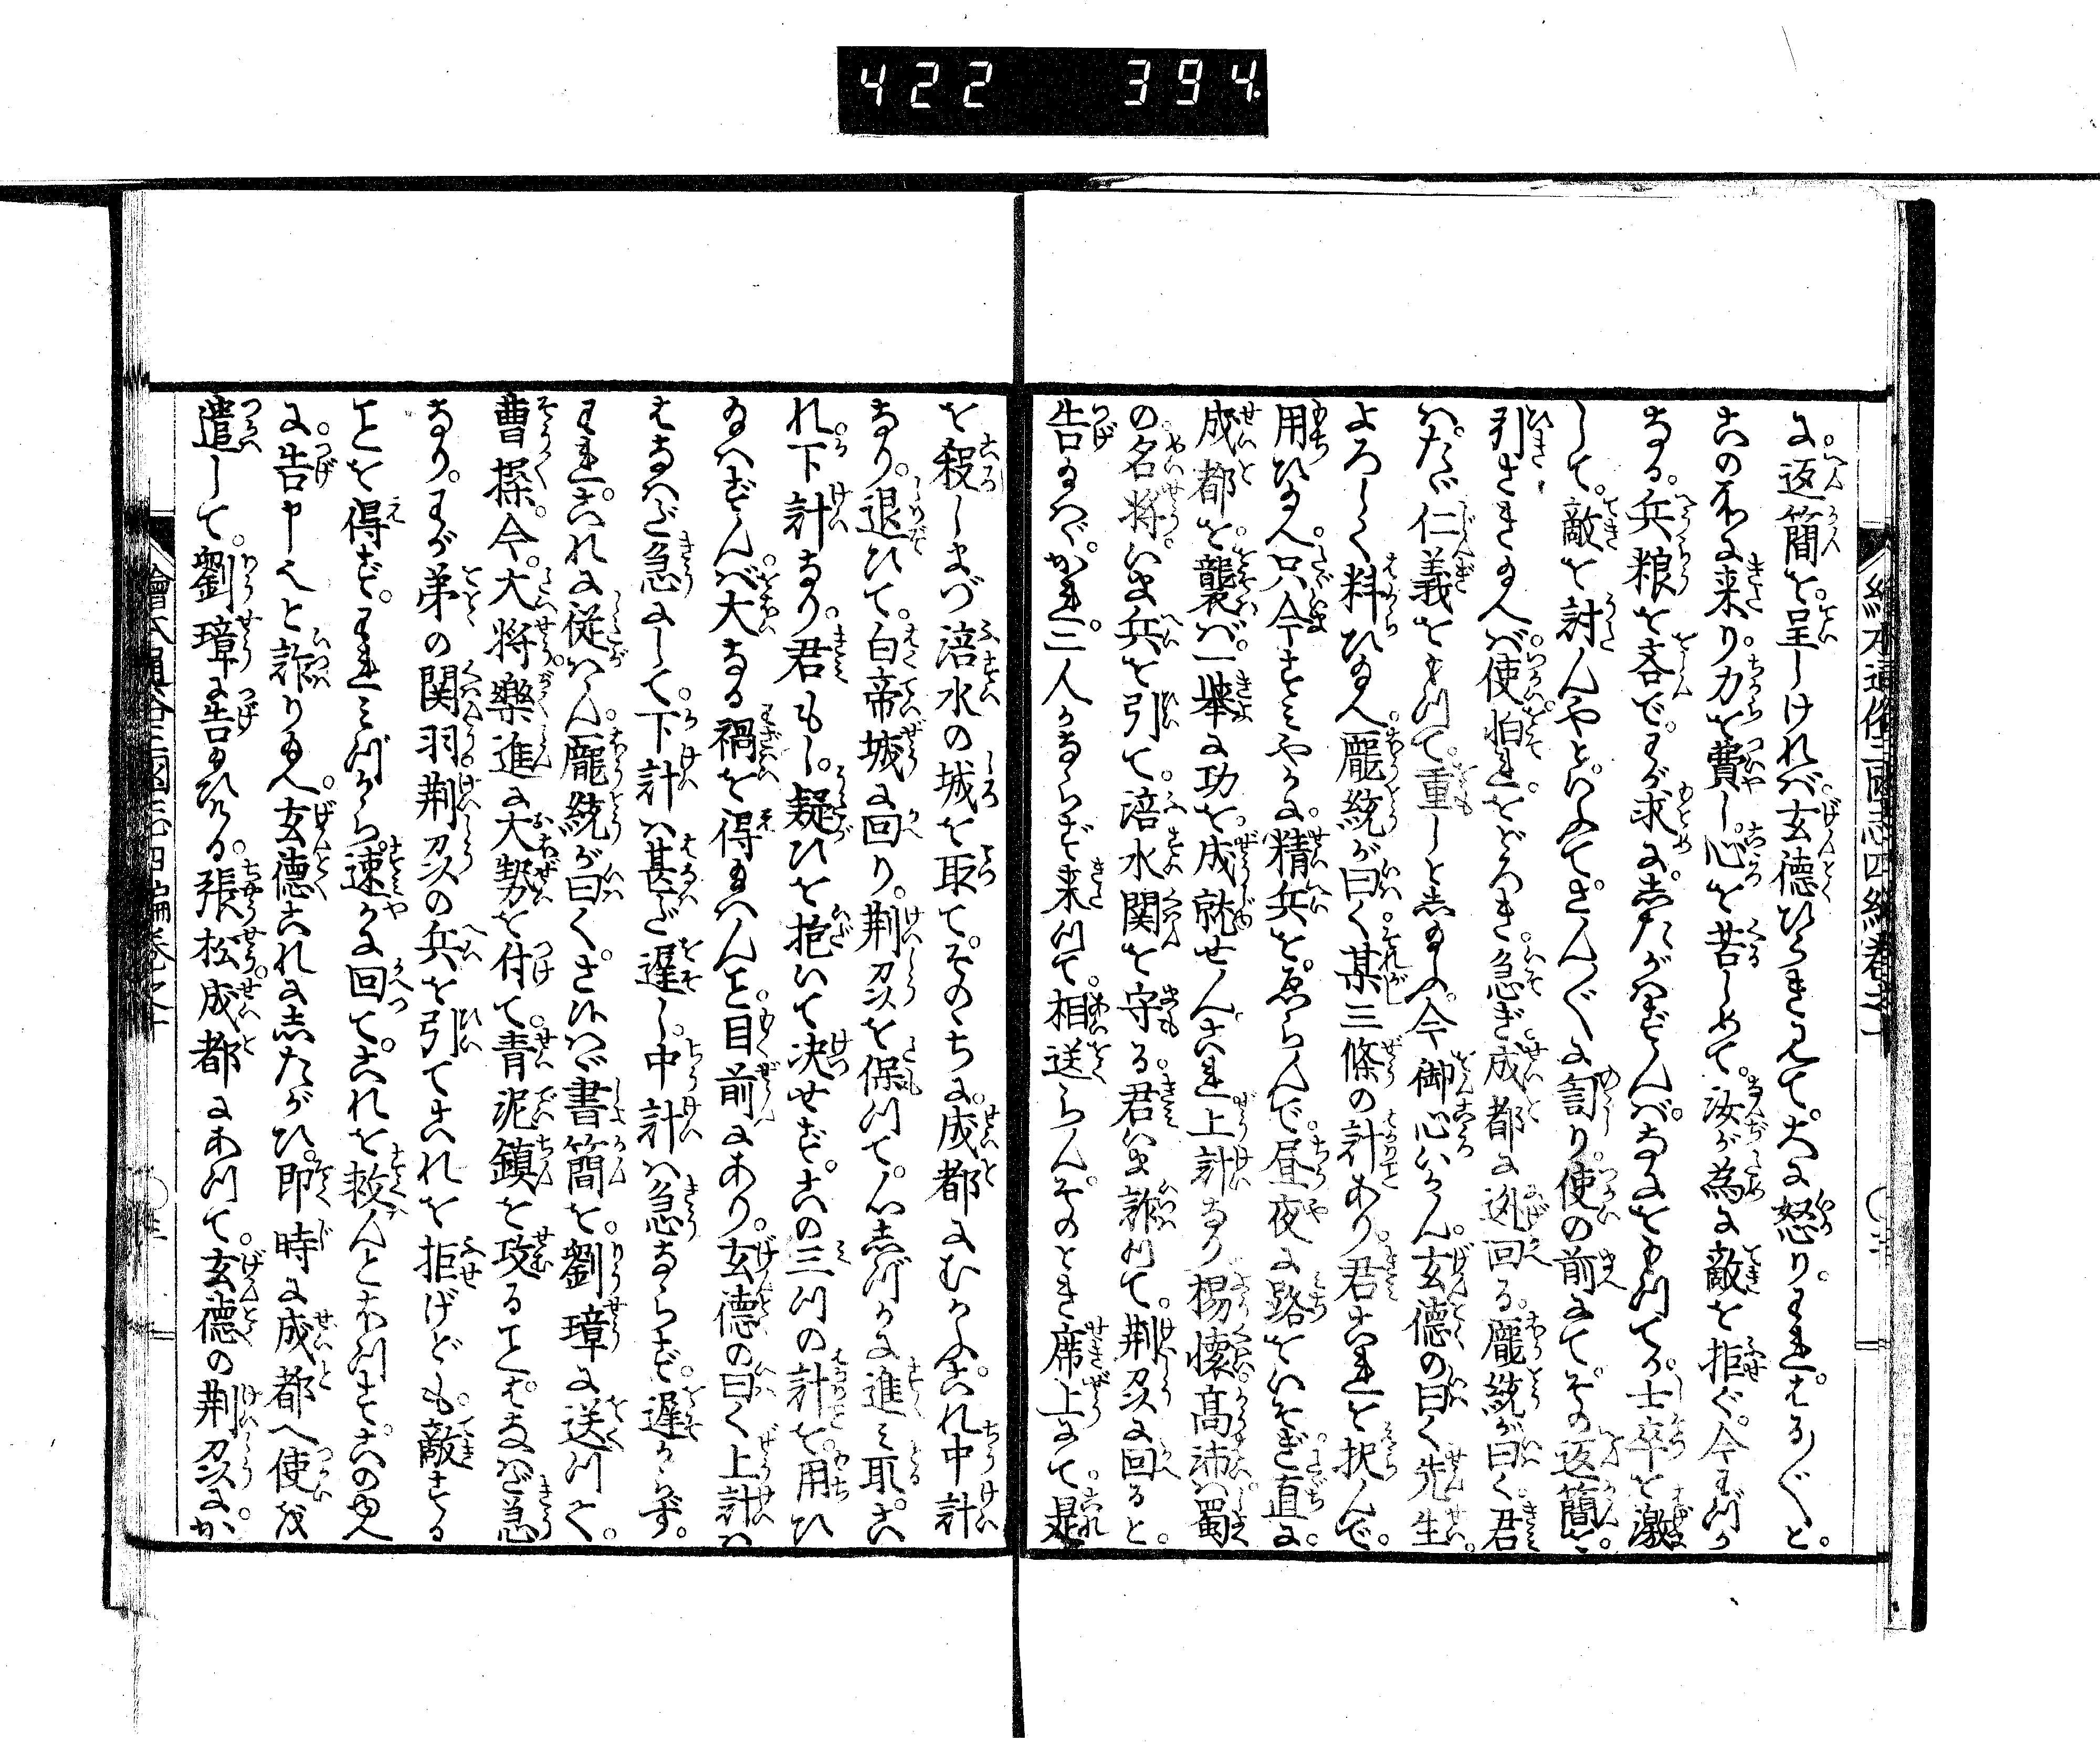 422 394
繪本通俗三國志四編卷之十
に返簡を呈しければ玄徳ひらきみて大に怒りわれはる〴〵と
この所に来り力を費し心を苦しめて汝が為に敵を拒ぐ今わづか
なる兵粮を吝でわが求にしたがはずんばなにをもつてか士卒を激
して敵を討んやといふてさん〴〵に罰り使の前にてその返簡を
引さき給へば使怕れをどろき急ぎ成都に迯回る龐統が曰く君
はたゞ仁義をもつて重しとし給ふ今御心いかん玄徳の曰く先生
よろしく料ひ給へ龐統が曰く某三條の計あり君これを択んで
用ひ給へ只今すみやかに精兵をゑらんで昼夜に路をいそぎ直に
成都を襲はば一挙に功を成就せんこれ上計なり楊懐高沛は蜀
の名将いま兵を引て涪水関を守る君いま詐つて荊刕に回ると
告給はゞかれ二人かならず来つて相送らんそのとき席上にて是
を殺しまづ涪水の城を取てそのゝちに成都にむかふこれ中計
なり退ひて白帝城に回り荊刕を保つて心しづかに進み取これ
れ下計なり君もし疑ひを抱いて決せずこの三つの計を用ひ
給はずんば大なる禍を得給はんと目前にあり玄徳の曰く上計は
はなはだ急にして下計は甚だ遅し中計は急ならず遅からず
われこれに従はん龐統が曰くさらば書簡を劉璋に送つて
曹操今大将樂進に大勢を付て青泥鎮を攻ることはなはだ急
なりわが弟の関羽荊刕の兵を引てこれを拒げども敵する
ことを得ずわれみづから速かに回てこれを救んとほつすこの由
に告申べしと詐り給へ玄徳これにしたがひ即時に成都へ使を
遣して劉璋に告給ひける張松成都にあつて玄徳の荊刕にか
繪本通俗三國志四編卷之十